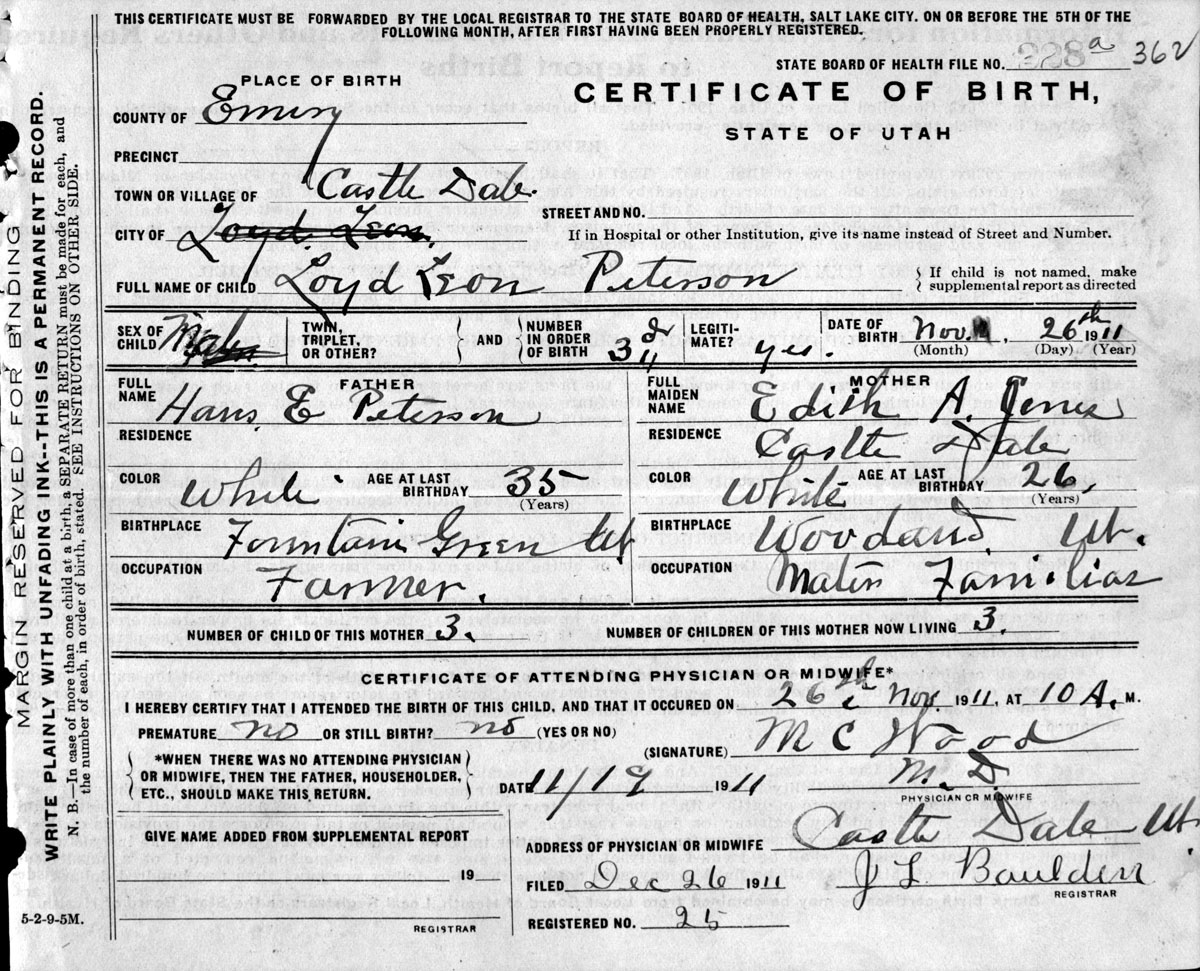 THIS CERTIFICATE MUST BE FORWARDED BY THE LOCAL REGISTRAR TO THE STATE BOARD OF HEALTH, SALT LAKE CITY. ON OR BEFORE THE 5TH OF THE
FOLLOWING MONTH, AFTER FIRST HAVING BEEN PROPERLY REGISTERED.
MARGIN RESERVED FOR BINDING
WRITE PLAINLY WITH UNFADING INK--THIS IS A PERMANENT RECORD.
N. B.—In case of more than one child at a birth, a SEPARATE RETURN must be made for each, and
the number of each, in order of birth, stated. SEE INSTRUCTIONS ON OTHER SIDE.
STATE BOARD OF HEALTH FILE NO. 228 a 362
PLACE OF BIRTH
CERTIFICATE OF BIRTH,
STATE OF UTAH
COUNTY OF Emery
PRECINCT
TOWN OR VILLAGE OF Castle Dale
STREET AND NO.
CITY OF Loyd Leon.
If in Hospital or other Institution, give its name instead of Street and Number.
FULL NAME OF CHILD Loyd Leon Peterson { If child is not named, make
supplemental report as directed
SEX OF CHILD Male TWIN, TRIPLET, OR OTHER? AND NUMBER IN ORDER OF BIRTH 3d LEGITI-MATE? yes. DATE OF BIRTH Nov. 26th 1911
(Month) (Day) (Year)
FATHER
FULL NAME Hans. E Peterson
RESIDENCE
COLOR White AGE AT LAST BIRTHDAY 35
(Years)
BIRTHPLACE Fountain Green Ut
OCCUPATION Farmer.
MOTHER
FULL MAIDEN NAME Edith A. Jones
RESIDENCE Castle Dale
COLOR White AGE AT LAST BIRTHDAY 26,
(Years)
BIRTHPLACE Woodland Ut.
OCCUPATION Mater Familias
NUMBER OF CHILD OF THIS MOTHER 3. NUMBER OF CHILDREN OF THIS MOTHER NOW LIVING 3.
CERTIFICATE OF ATTENDING PHYSICIAN OR MIDWIFE*
I HEREBY CERTIFY THAT I ATTENDED THE BIRTH OF THIS CHILD, AND THAT IT OCCURED ON 26th Nov. 1911, AT 10 A. M.
PREMATURE no OR STILL BIRTH? no (YES OR NO)
(SIGNATURE) M C Wood
M. D.
PHYSICIAN OR MIDWIFE
*WHEN THERE WAS NO ATTENDING PHYSICIAN
OR MIDWIFE, THEN THE FATHER, HOUSEHOLDER,
ETC., SHOULD MAKE THIS RETURN.
DATE 11/19 1911
ADDRESS OF PHYSICIAN OR MIDWIFE Castle Dale Ut
GIVE NAME ADDED FROM SUPPLEMENTAL REPORT
19
REGISTRAR
FILED Dec 26 1911 J L Boulden
REGISTRAR
REGISTERED NO. 25
5-2-9-5M.